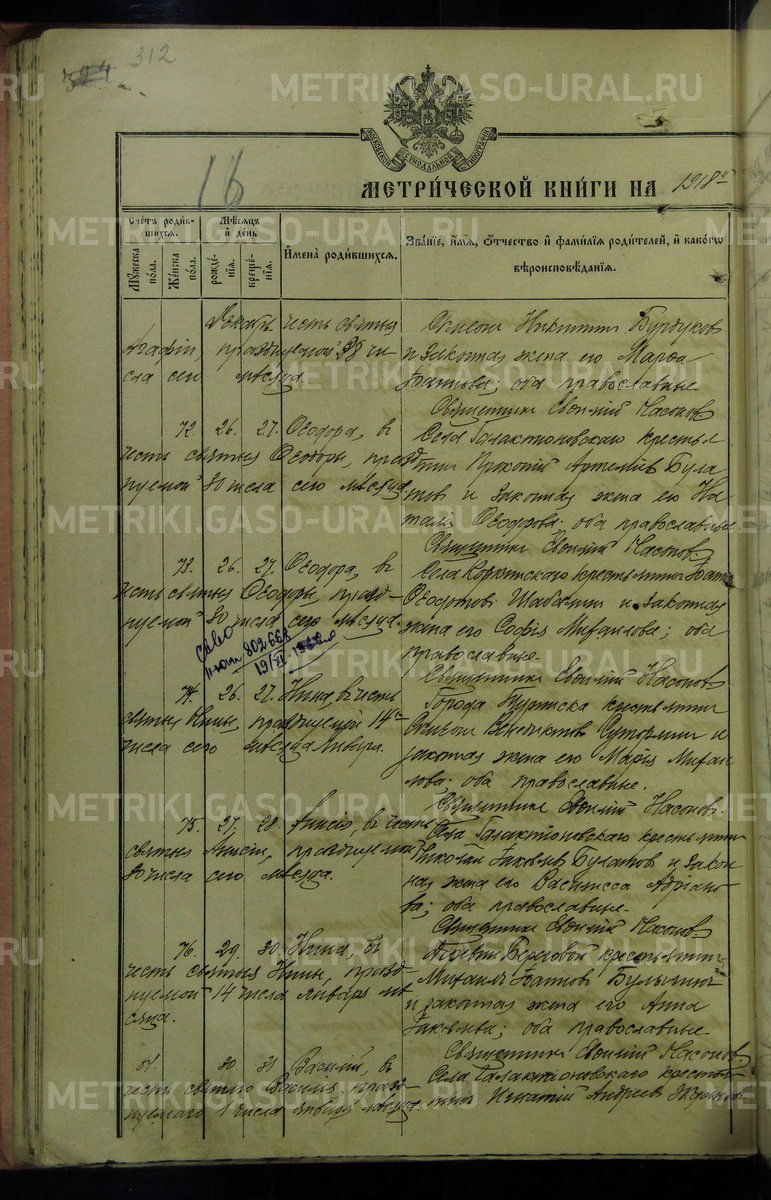 312
324
МОСКОВСКОЙ СИНОДАЛЬНОЙ ТИПОГРАФІИ
16
МЕТРИ́ЧЕСКОЙ КНИ́ГИ НА 1918
Сче́тъ роди́вшихся.
Му́жеска по́ла.
Же́нска по́ла.
Мѣ́сяцъ и҆ де́нь
рожде́нїѧ.
креще́нїѧ.
И҆мена̀ роди́вшихсѧ.
Зва́нїе, и҆́мѧ, ѻ҆́тчество и҆ фами́лїѧ роди́телей, и҆ како́гѡ
вѣроисповѣ́данїѧ.
Декабрь. честь святыя
Агафіи, празднуемой 28 чи
сла сего мѣсяца.
Никитинъ Бурдуковъ
и законная жена его Марѳа
Іоаннова; оба православные
Священникъ Евѳимій Насоновъ.
72. 26. 27. Ѳеодора, въ
честь святыя Ѳеодоры, празд
нуемой 30 числа сего мѣсяца
Села Галактіоновскаго крестья
нинъ Прокопій Артеміевъ Була
товъ и законная жена его На
талія Ѳеодорова; оба православные.
Священникъ Евѳимій Насоновъ.
73. 26. 27. Ѳеодора, въ
честь святыя Ѳеодоры, празд-
нуемой 30 числа сего мѣсяца.
Села крестьянинъ Іоаннъ
Ѳеодотовъ и законная
жена его Софія Михаилова; оба
православные.
Священникъ Евѳимій Насоновъ
802668
19/XI
74. 26. 27. Нина, въ честь
святыя Нины, празднуемой 14го
числа сего мѣсяца Января.
Города Туринска крестьянинъ
Венедиктовъ и
законная жена его Марія Михаи
лова; оба православные.
Священникъ Евѳимій Насоновъ.
75. 27. 28. Анисія, въ честь
святыя Анисіи, празднуемой
30 числа сего мѣсяца.
Села Галактіоновскаго крестьянинъ
Николай Іаковлевъ Булатовъ и закон
ная жена его Василисса Адріано
ва; оба православные.
Священникъ Евѳимій Насоновъ.
76. 29. 30. Нина, въ
честь святыя Нины, празд-
нуемой 14 числа Января мѣ
сяца.
Деревни Береговой крестьянинъ
Михаилъ Іоанновъ Булычевъ
и законная жена его Анна
Іаковлева; оба православные.
Священникъ Евѳимій Насоновъ
30 31 Василій, въ
честь святаго Василія, празд-
нуемаго 1 числа Января мѣсяца.
Села Галактіоновскаго крестья-
нинъ Игнатій Андреевъ
METRIKI.GASO-URAL.RU